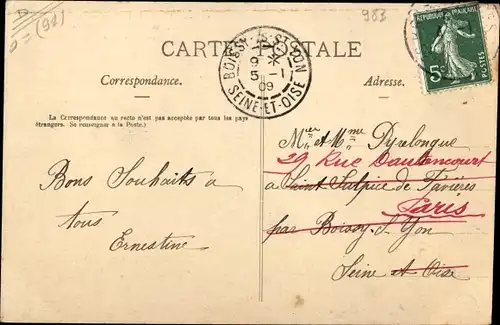 D
= (91)
983
CARTE POSTALE
BOISSY-S-ST-YON
9 *
5 -1
09
SEINE-ET-OISE
REPUBLIQUE FRANÇAISE
5c
POSTES
Correspondance.
Adresse.
La Correspondance au recto n'est pas acceptée par tous les pays
étrangers. (Se renseigner à la Poste.)
Bons Souhaits a
tous
Ernestine
et Mme Dyrelongue
29 Rue Dautancourt
a Saint Sulpice de Favières
Paris
par Boissy S. Yon
Seine et Oise